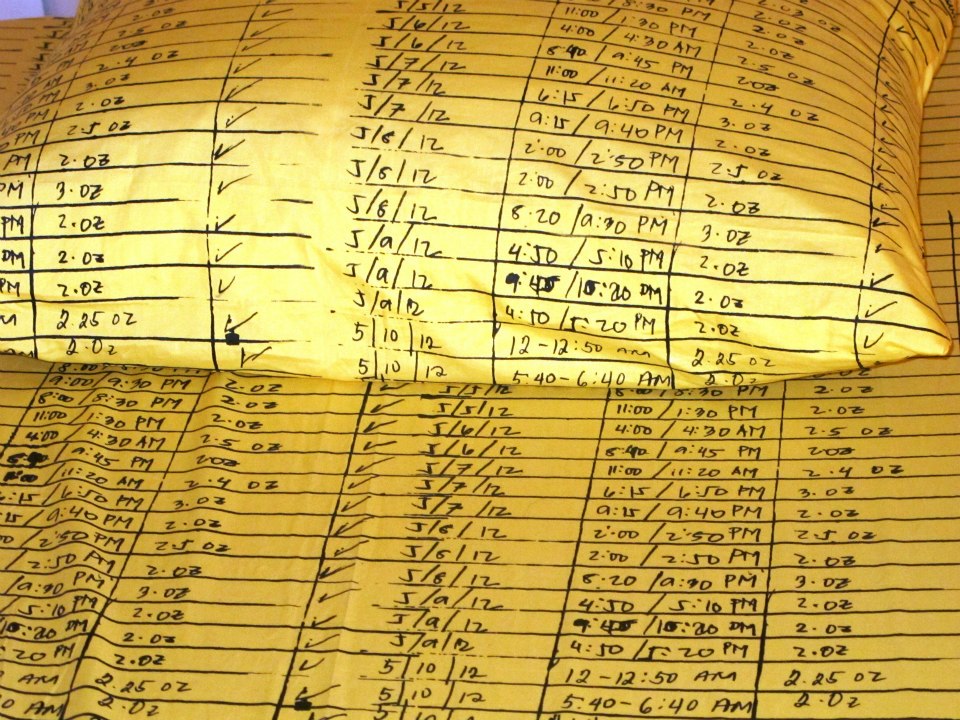 5/5/12 11:00 / 1:30 PM 2.0z
2.5 oz ✓ 5/6/12 4:00 / 4:30 AM 2.5 oz
2oz ✓ 5/6/12 8:40 / 9:45 PM 2oz
2.4 oz ✓ 5/7/12 11:00 / 11:20 AM 2.4 oz
3.0z ✓ 5/7/12 6:15 / 6:50 PM 3.0z
PM 2.0z ✓ 5/7/12 9:15 / 9:40 PM 2.0z
PM 2.5 oz ✓ 5/8/12 2:00 / 2:50 PM 2.5 oz
PM 2.0z ✓ 5/8/12 2:00 / 2:50 PM 2.0z
PM 3.0z ✓ 5/8/12 8:20 / 9:30 PM 3.0z
PM 2.0z ✓ 5/9/12 4:50 / 5:10 PM 2.0z
PM 2.0z ✓ 5/9/12 9:45 / 10:20 PM 2.0z
PM 2.0z ✓ 5/9/12 4:50 / 5:20 PM 2.0z
2.25 oz ✓ 5|10|12 12-12:50 AM 2.25 oz
AM 2.0z ✓ 5|10|12 5:40-6:40 AM 2.0z
9:00 / 9:30 PM 2.0z ✓ 5/5/12 8:00 / 8:30 PM 2.0z
8:00 / 8:30 PM 2.0z ✓ 5/5/12 11:00 / 1:30 PM 2.0z
11:00 / 1:30 PM 2.0z ✓ 5/6/12 4:00 / 4:30 AM 2.5 oz
4:00 / 4:30 AM 2.5 oz ✓ 5/6/12 8:40 / 9:45 PM 2oz
8:40 / 9:45 PM 2oz ✓ 5/7/12 11:00 / 11:20 AM 2.4 oz
11:00 / 11:20 AM 2.4 oz ✓ 5/7/12 6:15 / 6:50 PM 3.0z
6:15 / 6:50 PM 3.0z ✓ 5/7/12 9:15 / 9:40 PM 2.0z
9:40 PM 2.0z ✓ 5/8/12 2:00 / 2:50 PM 2.5 oz
2:50 PM 2.5 oz ✓ 5/8/12 2:00 / 2:50 PM 2.0z
2:50 PM 2.0z ✓ 5/8/12 8:20 / 9:30 PM 3.0z
9:30 PM 3.0z ✓ 5/9/12 4:50 / 5:10 PM 2.0z
5:10 PM 2.0z ✓ 5/9/12 9:45 / 10:20 PM 2.0z
10:20 PM 2.0z ✓ 5/9/12 4:50 / 5:20 PM 2.0z
20 PM 2.0z ✓ 5|10|12 12-12:50 AM 2.25 oz
AM 2.25 oz ✓ 5|10|12 5:40-6:40 AM 2.0z
AM 2.0z